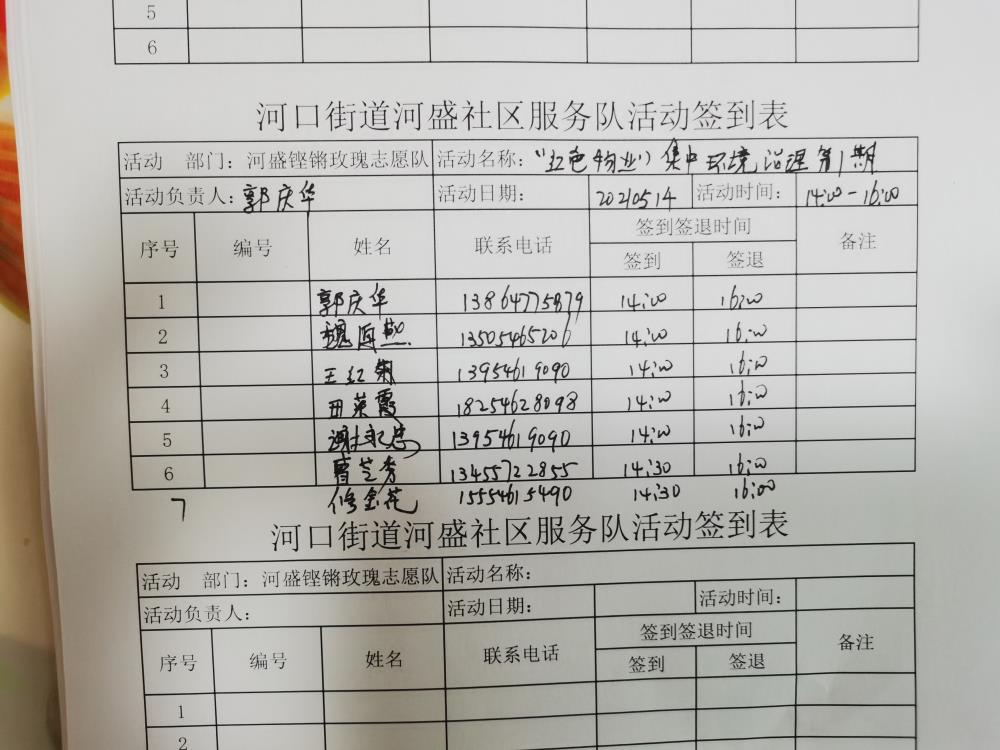 5
6
河口街道河盛社区服务队活动签到表
活动 部门：河盛铿锵玫瑰志愿队 活动名称：“红色物业”集中环境治理第1期
活动负责人：郭庆华 活动日期： 20210514 活动时间： 14:00-16:00
序号 编号 姓名 联系电话 签到签退时间 备注
签到 签退
1 郭庆华 13864775879 14:00 16:00
2 魏 13505465206 14:00 16:00
3 王红 13954619090 14:00 16:00
4 田英霞 18254628098 14:00 16:00
5 谢 忠 13954619090 14:00 16:00
6 曹芝秀 13455722855 14:30 16:00
7 修金花 15554615490 14:30 16:00
河口街道河盛社区服务队活动签到表
活动 部门：河盛铿锵玫瑰志愿队 活动名称：
活动负责人： 活动日期： 活动时间：
序号 编号 姓名 联系电话 签到签退时间 备注
签到 签退
1
2